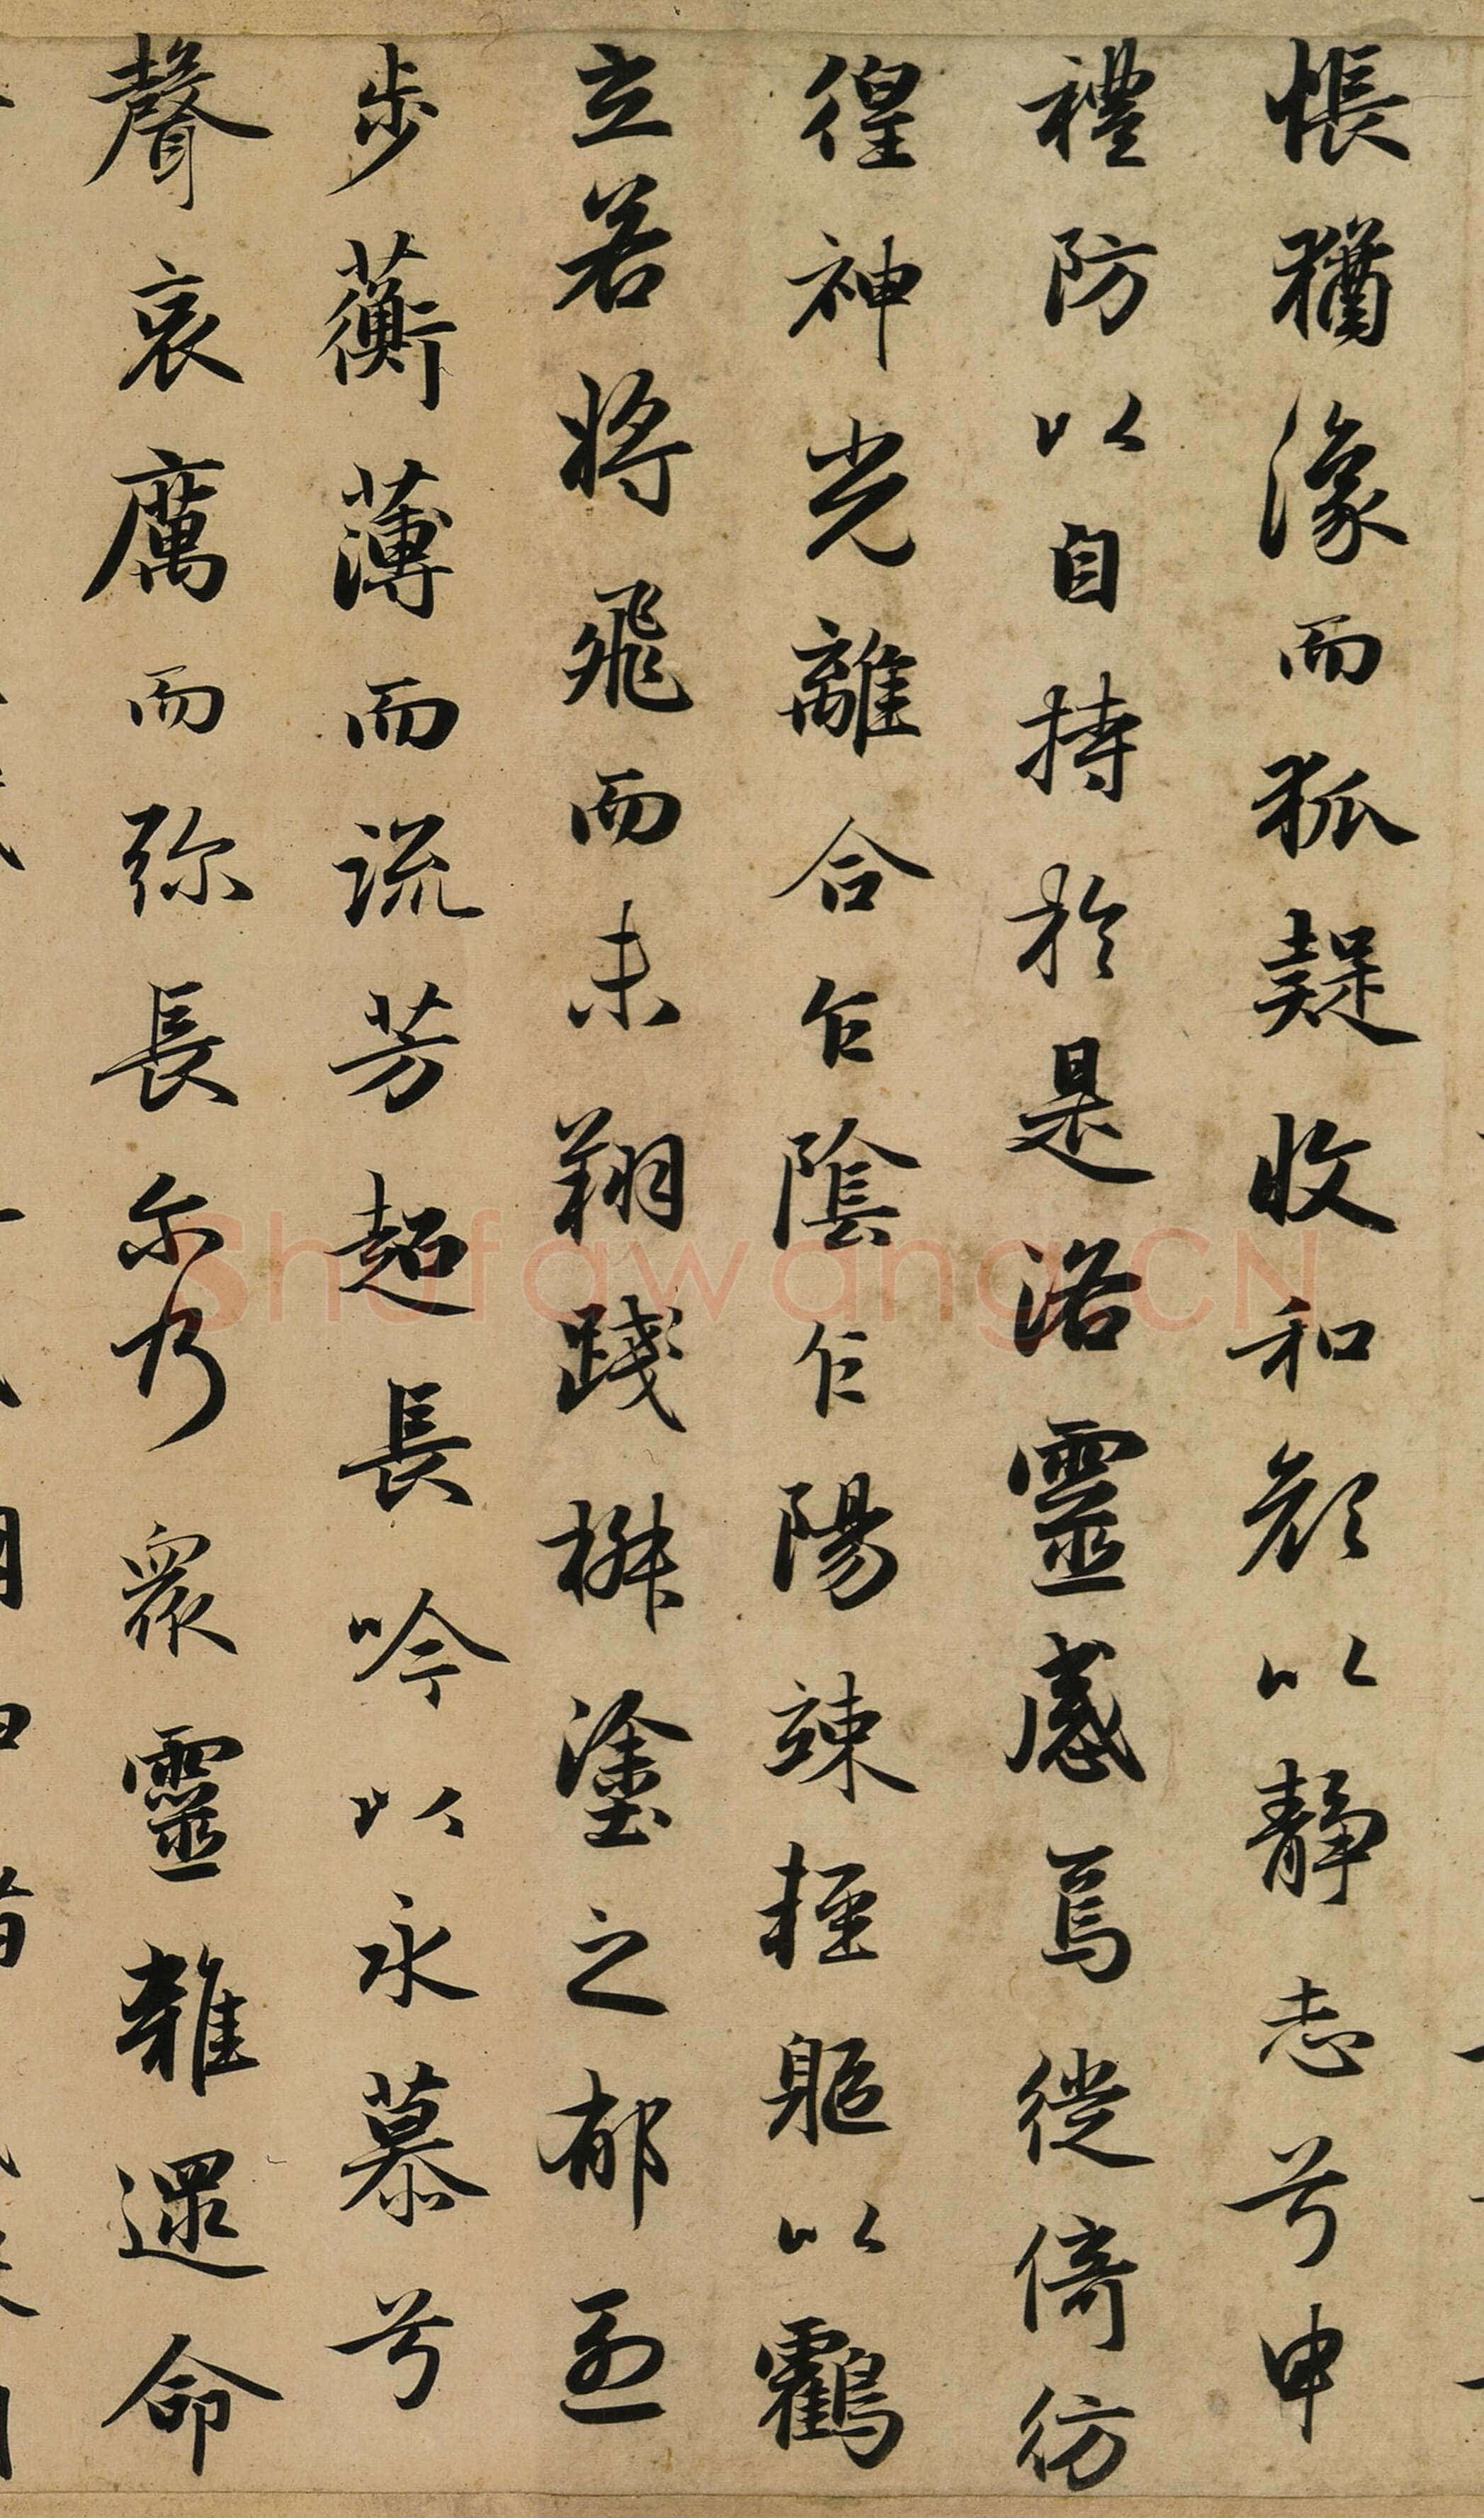 悵猶潒而狐疑收和顔以静志兮申
禮防以自持於是洛靈感焉徙倚彷
徨神光離合乍陰乍陽竦軽軀以鸖
立若將飛而未翔踐椒塗之郁烈
步蘅薄而流芳超長吟以永慕兮
聲哀厲而弥長尒乃衆靈雜遝命
Shufawang.CN